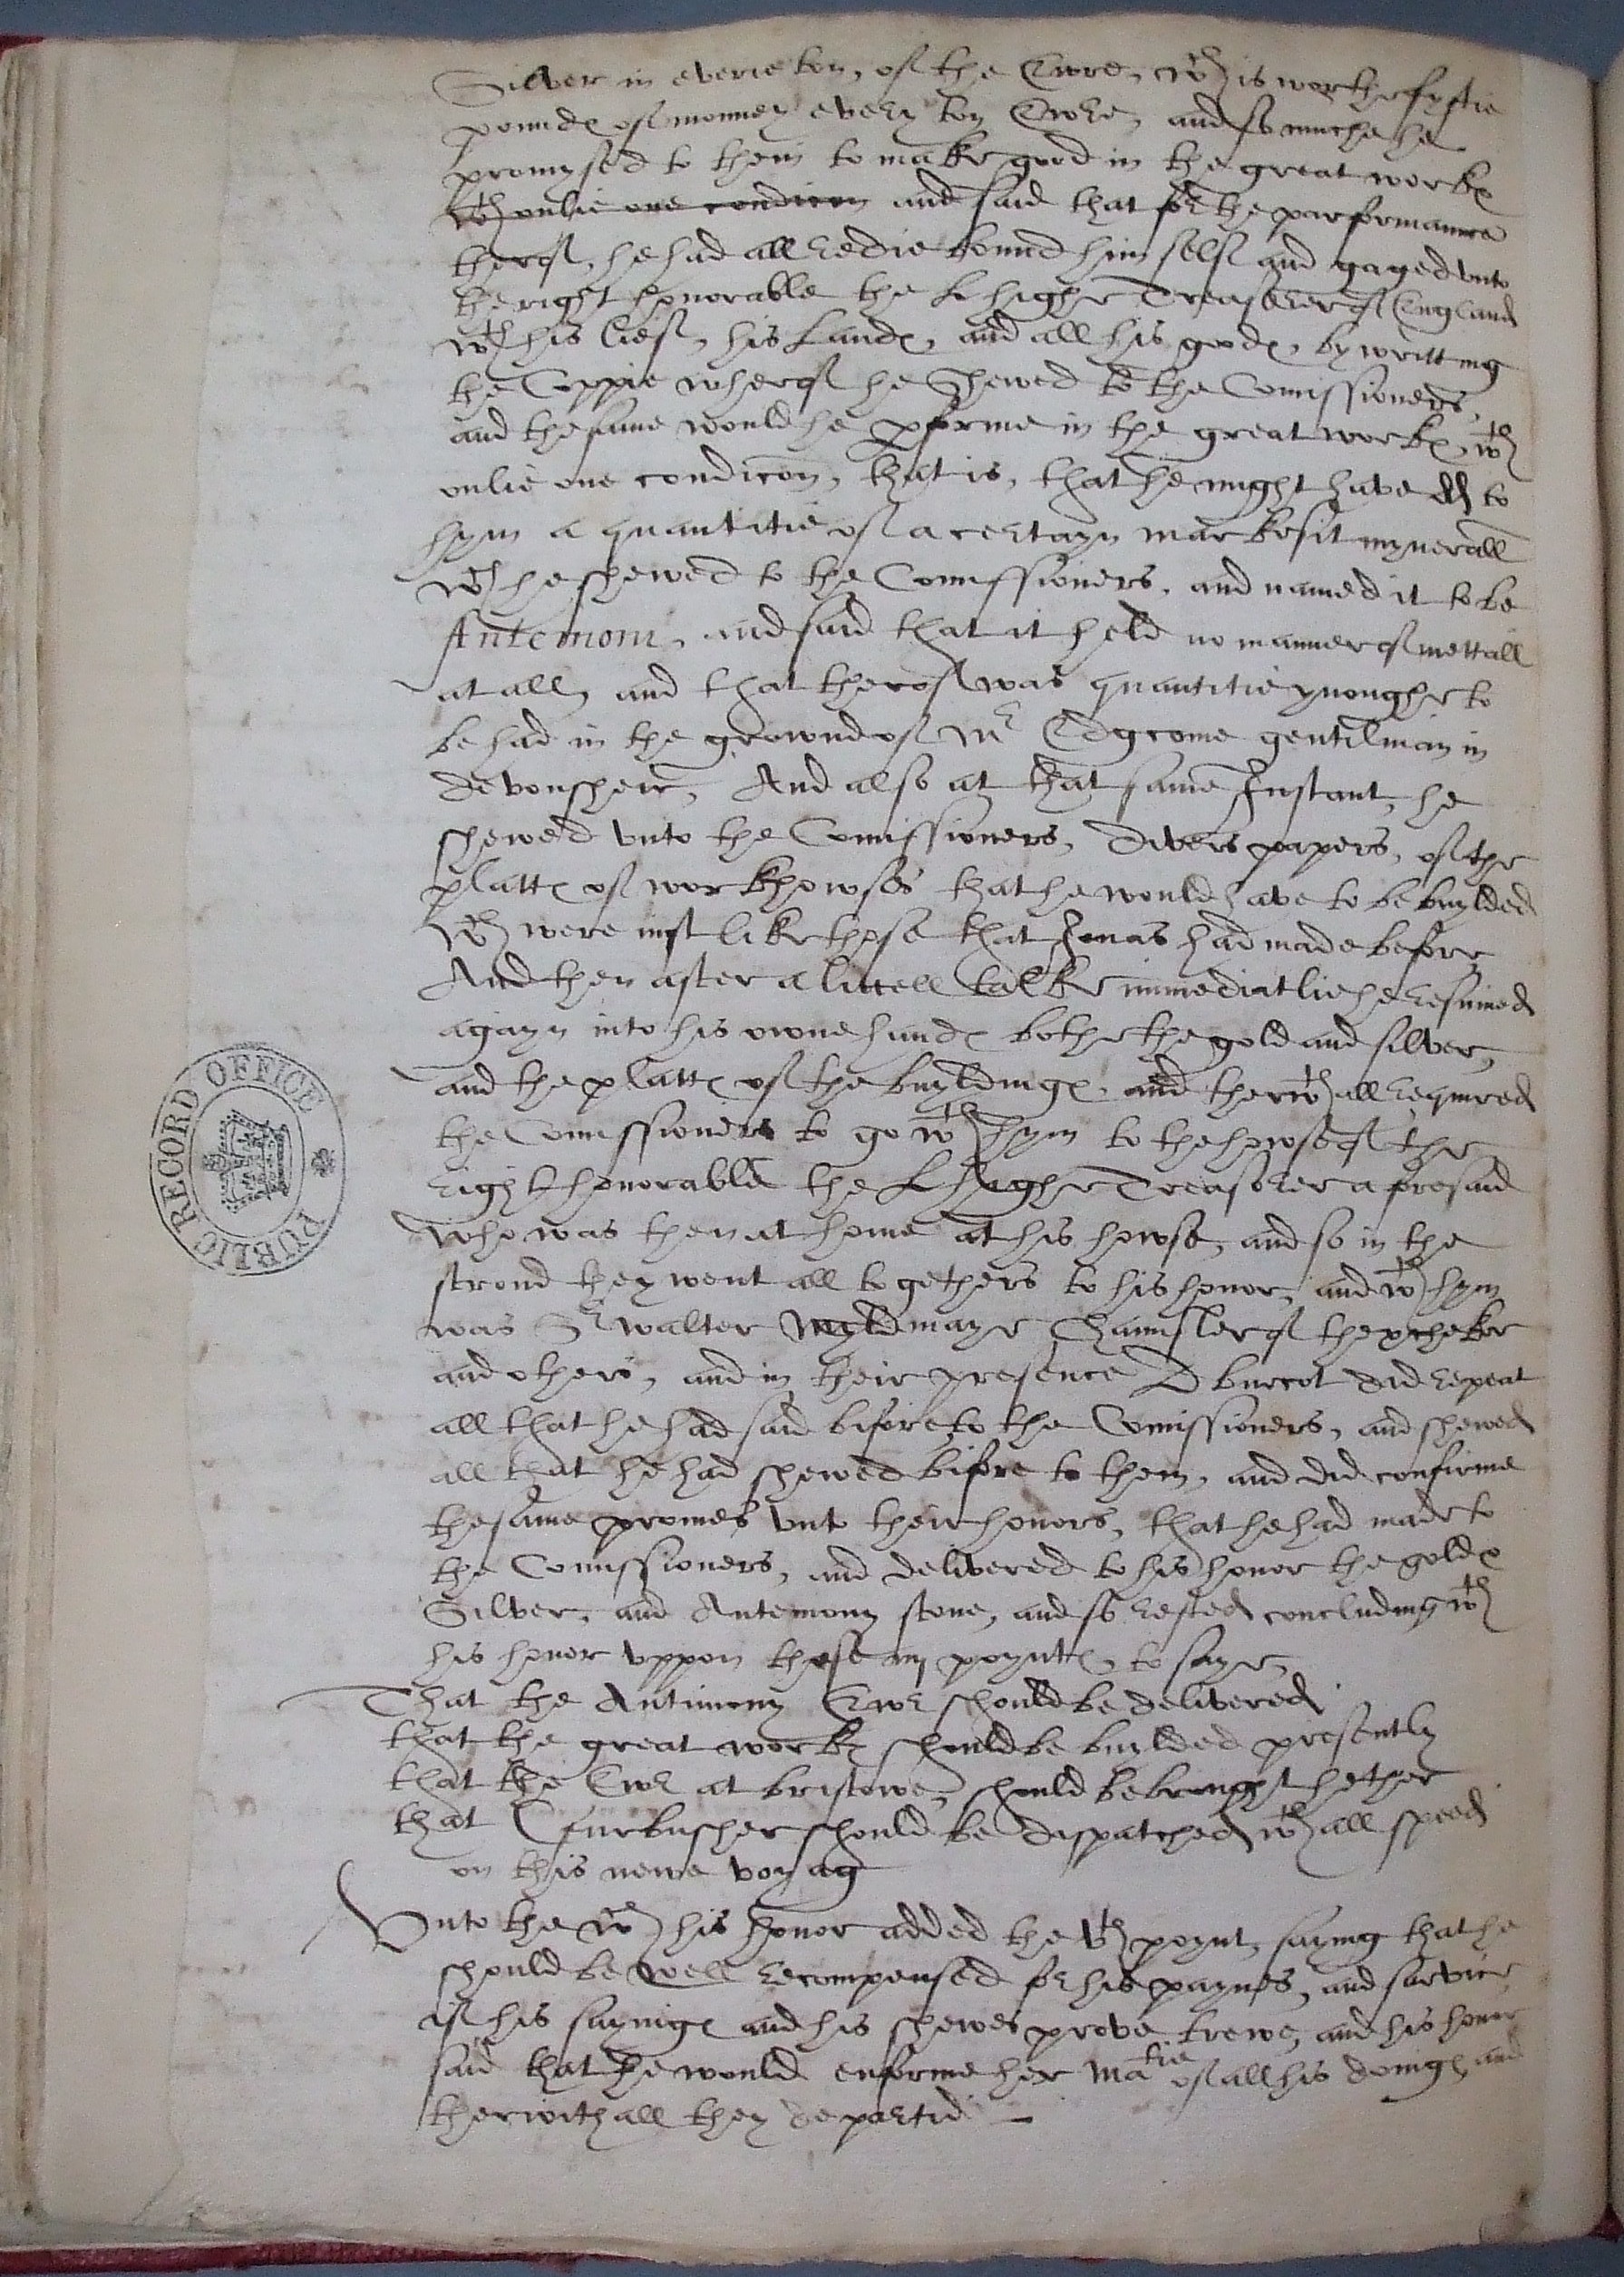 Silver in everie ton, of the Ewre, wch is worthe fyftie
poundes of monney every ton Ewre, and so muche he
promysed to them to make good in the great workes
wth onlie one condicon and said that for the parformance
therof, he had allredie bound him self and gaged unto
the right honorable the L highe Treasorer of England
wth his lief, his Landes, and all his goodes, by writting
the Coppie wherof he shewed to the Comissioners,
and the same would he pforme in the great workes, wth
onlie one condicon, that is, that he might have dd to
hym a quantitie of a certayn markesit mynerall
wch he shewed to the Comissioners, and named it to be
Antemoni, and said that it held no manner of mettall
at all, and that therof was quantitie ynoughe to
be had in the grownd of Mr Edgcome gentilman in
devonsheir, And also at that same Instant, he
shewed unto the Comissioners, divers papers, of the
plattes of workhowses that he would have to be buylded
wch were just like those that Jonas had made before
And then after a littell talke immediatlie he resumed
agayn into his owne handes bothe the gold and silver,
and the plattes of the buyldinges, and therwthall required
the Comissioners to go wth hym to the howse of the
right honorable the L highe Treasorer aforesaid
who was then at home at his howse, and so in the
strond they went all togethers to his honor, and wth hym
was Sr walter Myldmaye Chaunsler of thexcheker
and others, and in their presence D burcot did repeat
all that he had said bifore to the Comissioners, and shewed
all that he had shewed bifore to them, and did confirme
the same promes unto their honors, that he had made to
the Comissioners, and delivered to his honor the gold
Silver, and Antemony stone, and so rested concluding wth
his honor uppon these iiij poyntes, to saye,
That the Antimony Ewr should be delivered
that the great workes should be buylded presently
that the Ewr at bristowe, should be brought hether
that Cfurbusher should be dispatched wth all speed
on this newe voyag
Unto the wch his honor added the vth poynt, saying that he
should be well recompensed for his paynes, and sarvice
if his sayinges and his shewes prove trewe, and his honor
said that he would enforme her Matie of all his doinges and
therwithall they departid –
PUBLIC RECORD OFFICE